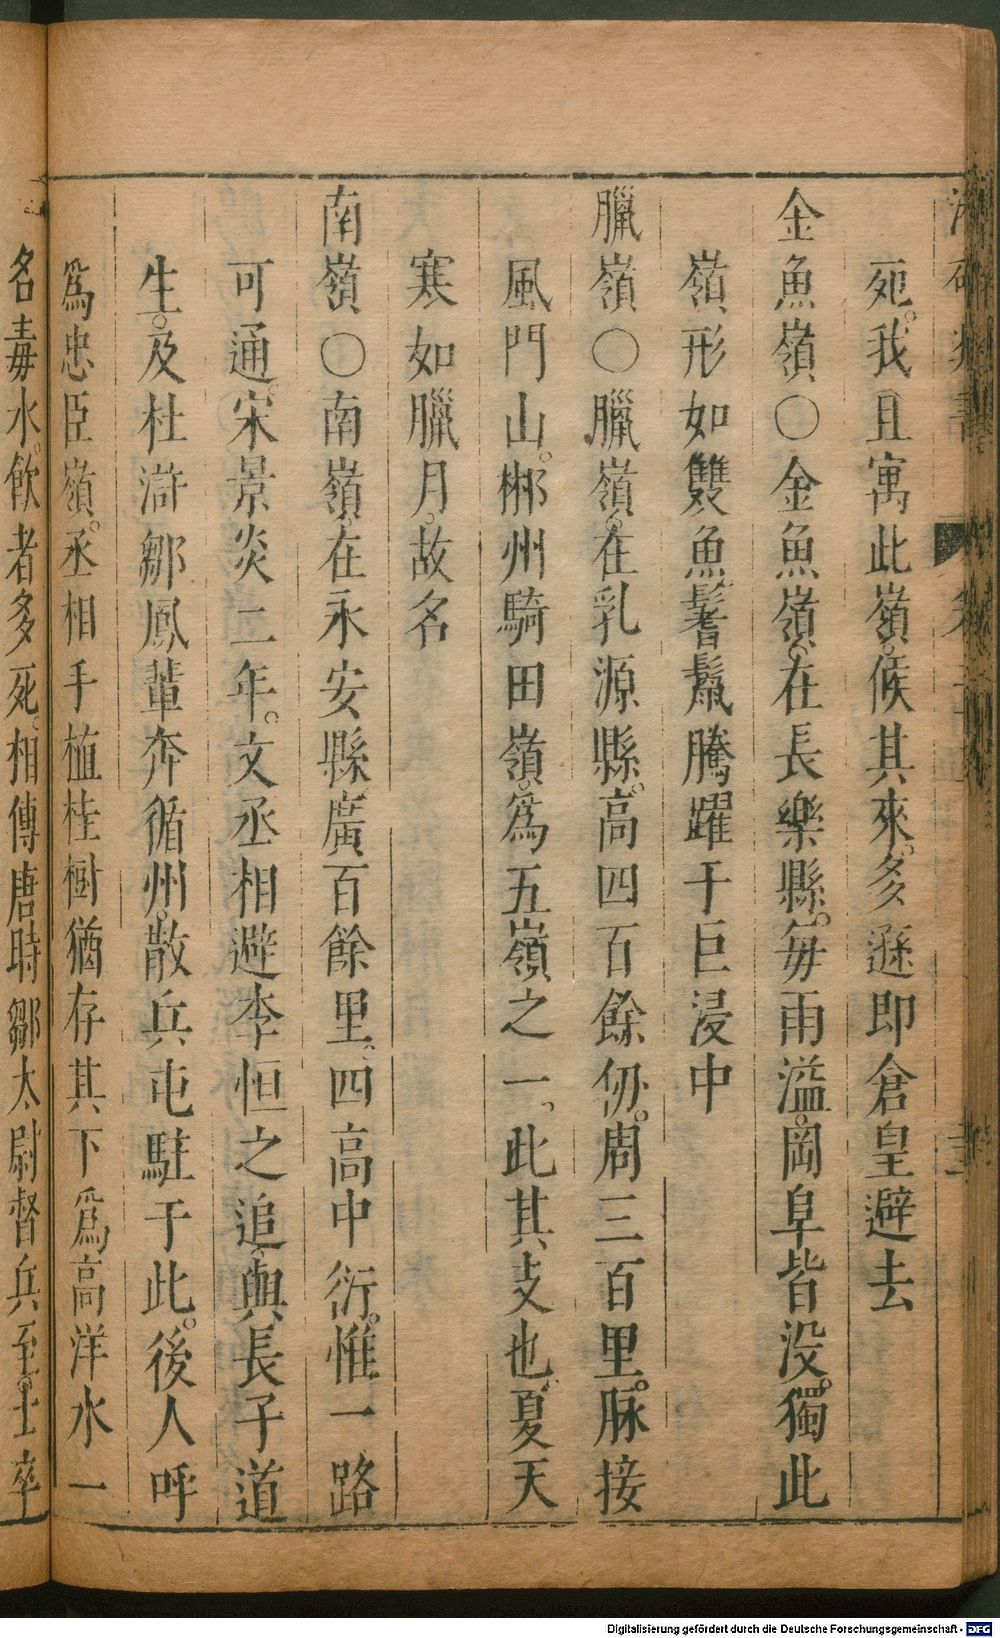 死。我且寓此嶺。候其來。多遜即倉皇避去
金魚嶺○金魚嶺。在長樂縣。每雨溢。岡阜皆没。獨此
嶺形如雙魚。鬐鬛騰躍于巨浸中
臘嶺○臘嶺。在乳源縣。高四百餘仞。周三百里。脉接
風門山。郴州騎田嶺。爲五嶺之一。此其支也。夏天
寒如臘月。故名
南嶺○南嶺。在永安縣。廣百餘里。四高中衍。惟一路
可通宋景炎二年。文丞相避李恒之追。與長子道
生。及杜滸鄒鳳輩奔循州。散兵屯駐于此。後人呼
爲忠臣嶺。丞相手植桂樹猶存其下爲高洋水一
名毒水。飲者多死。相傳唐時鄒太尉督兵至。士卒
Digitalisierung gefördert durch die Deutsche Forschungsgemeinschaft - DFG